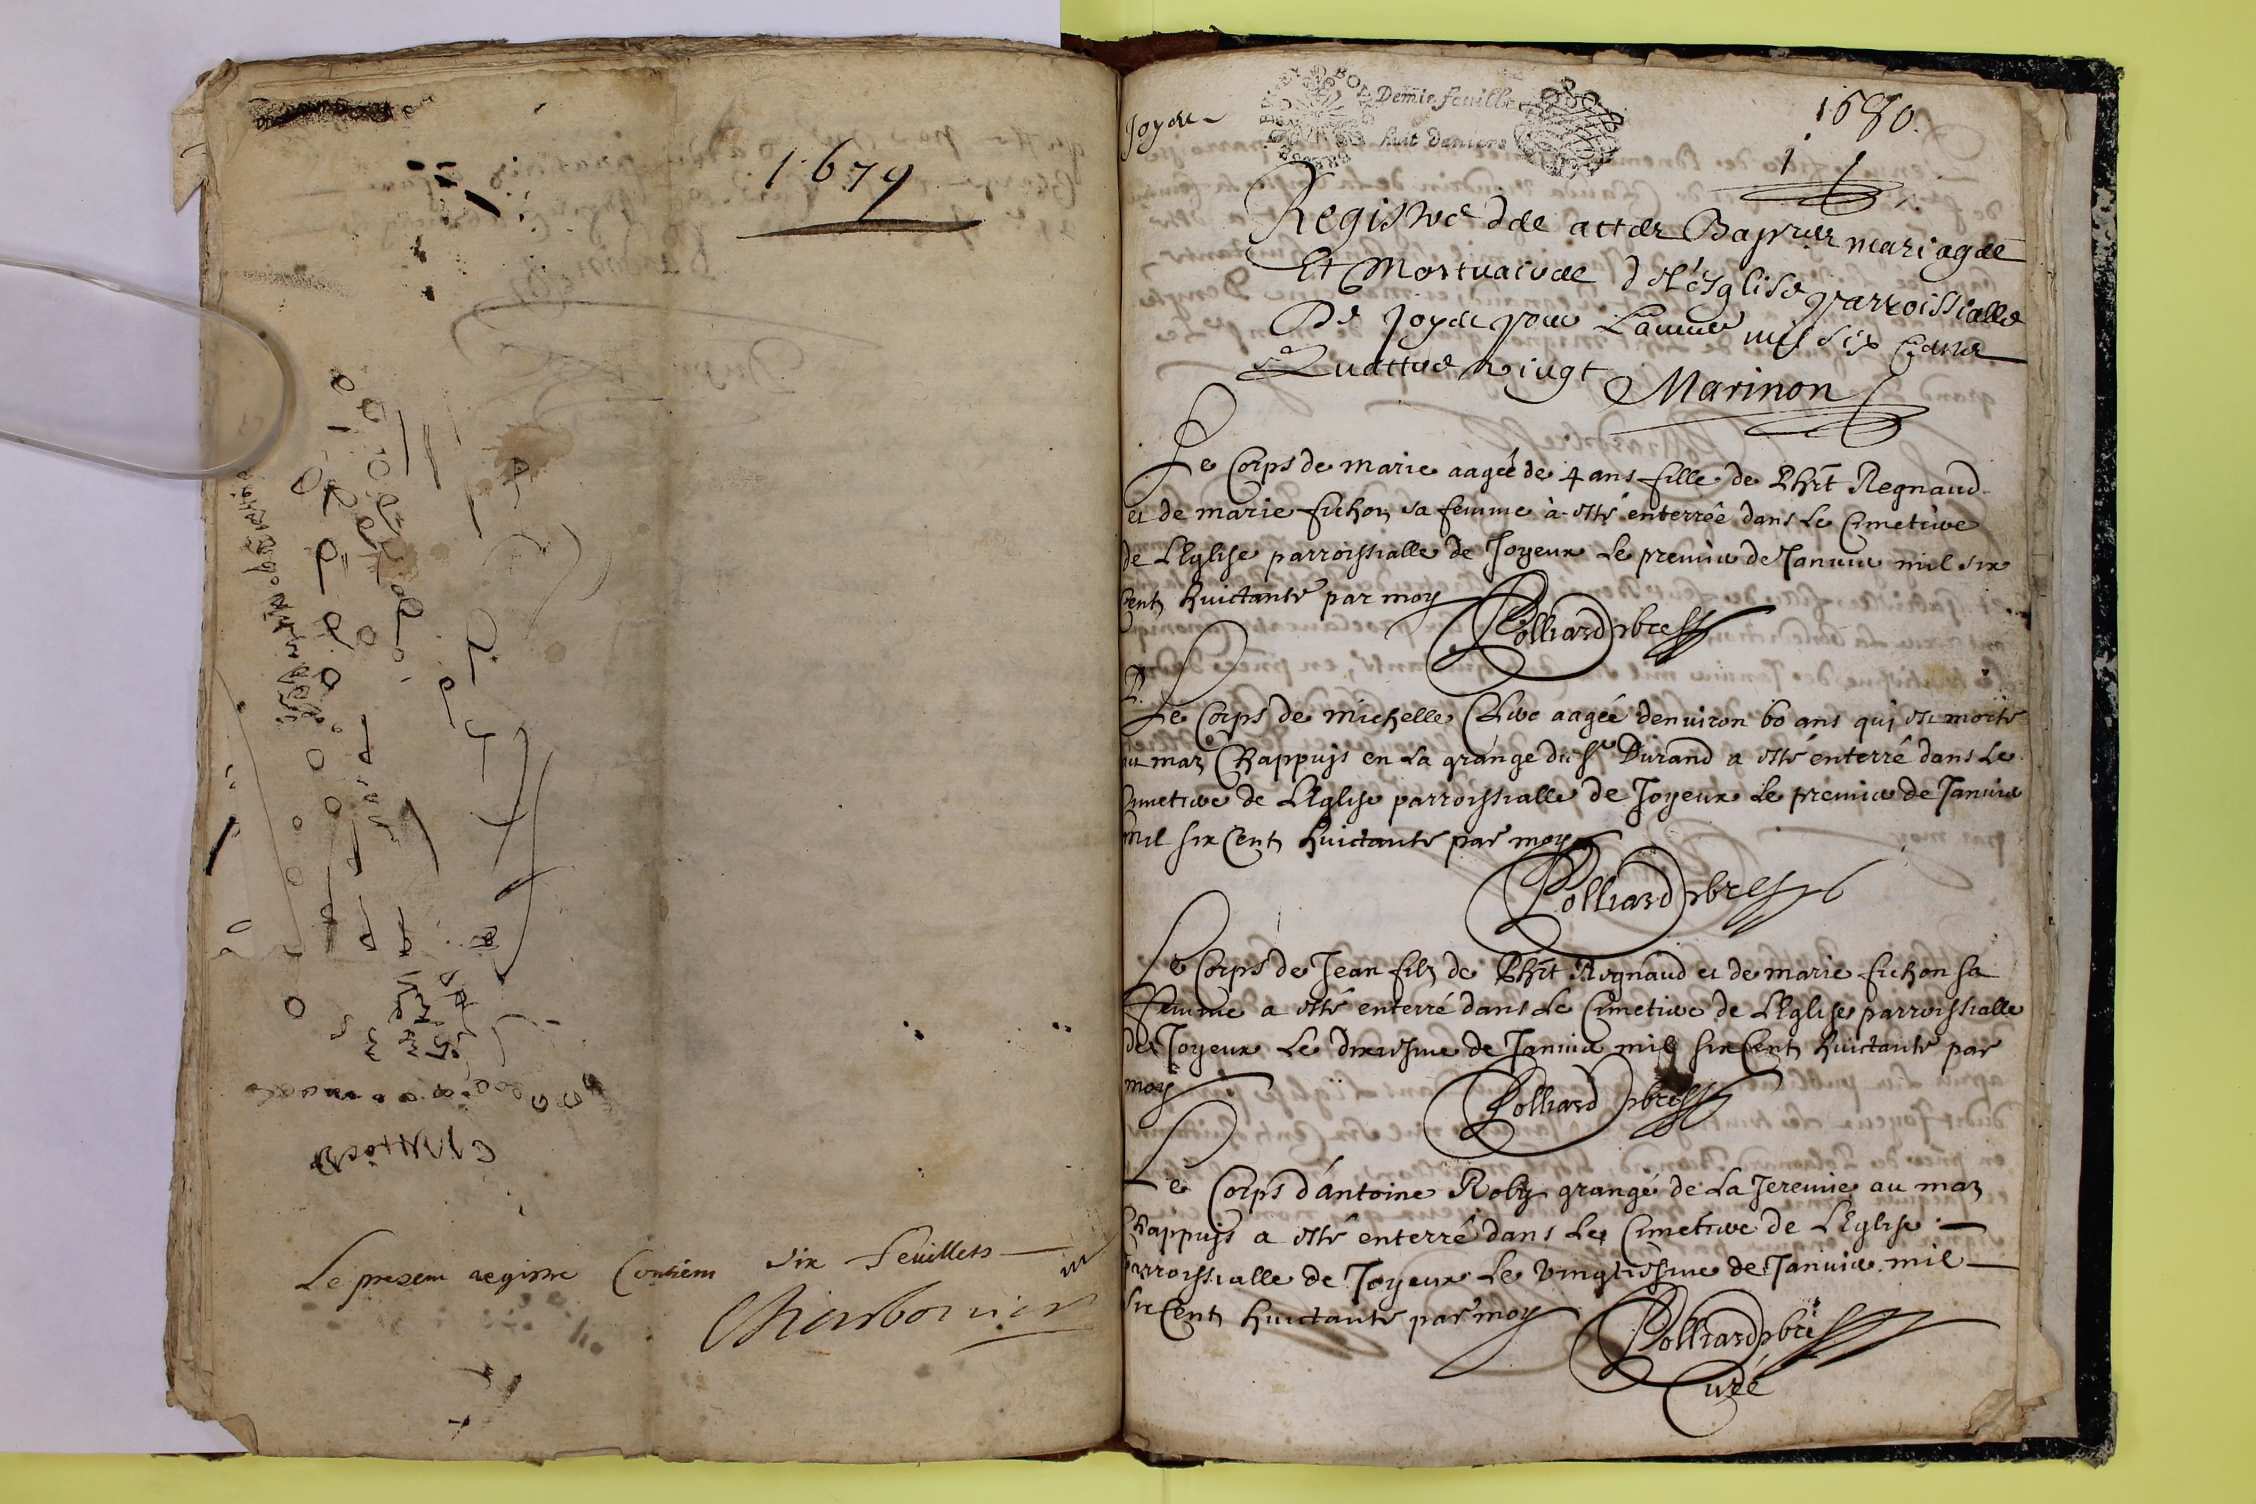 1679
Le present registre Contient six feuillets
Charbonnier
Joyeux
Demie feuille
huit deniers
1680.
1
Registre des actes Baptistes mariages
Et Mortuaires de l'église parroissialle
De Joyeux pour Lannee mil six Cents
Quattre vingt Marinon
Le Corps de marie aagée de 4 ans fille de Phīt Regnaud
et de marie fichon sa femme à esté enterrée dans Le Cimetiere
de LEglise parroissialle de Joyeux Le premier de Januier mil six
Cent huictante par moy
Polliard pbre
Le Corps de michelle Clerc aagée denuiron 60 ans qui est morte
au mas Chappuys en La grange du Sr Durand a esté enterré dans Le
Cimetiere de LEglise parroissialle de Joyeux Le premier de Januier
mil six Cent huictante par moy
Polliard pbre
Le Corps de Jean filz de Phīt Regnaud et de marie fichon sa
femme a esté enterré dans Le Cimetiere de LEglise parroissialle
de Joyeux Le dixiesme de Januier mil six Cent huictante par
moy
Polliard pbre
Le Corps d'antoine Roby grangé de La Jeremie au mas
Chappuys a esté enterré dans Le Cimetiere de LEglise
parroissialle de Joyeux Le vingtiesme de Januier mil
six Cent huictante par moy
Polliard pbre
Curé